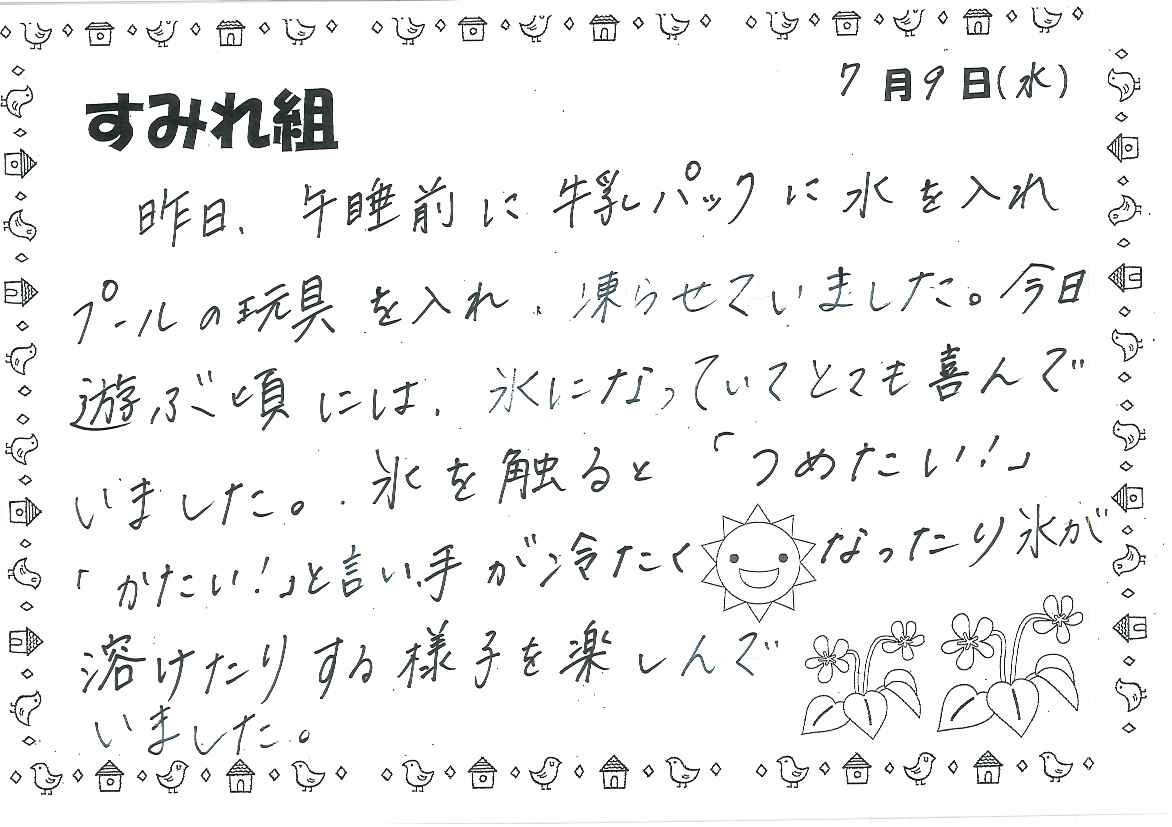 7月9日(水)
すみれ組
昨日、午睡前に牛乳パックに水を入れ
プールの玩具を入れ、凍らせていました。今日
遊ぶ頃には、氷になっていてとても喜んで
いました。氷を触ると「つめたい!」
「かたい!」と言い、手が冷たくなったり氷が
溶けたりする様子を楽しんで
いました。